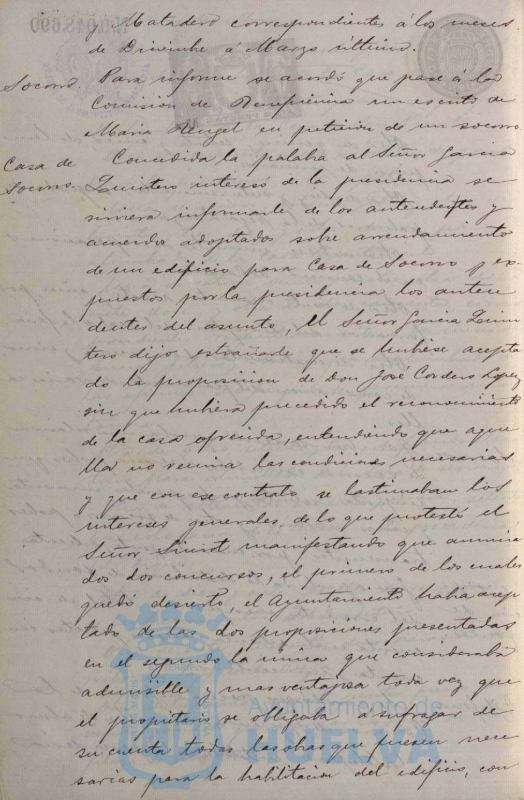 y Matadero correspondientes á los meses
de Diciembre a Marzo último.
Socorro. Para informe se acordó que pase á la
Comision de Beneficencia un escrito de
Maria Rengel en peticion de un socorro
Casa de Socorro. Concedida la palabra al Señor Garcia
Quintero interesó de la presidencia se
sirviera informarle de los antecedentes y
acuerdos adoptados sobre arrendamiento
de un edificio para Casa de Socorro y ex-
puestos por la presidencia los antece
dentes del asunto, el Señor Garcia Quin
tero dijo estrañarle que se hubiese acepta
do la proposicion de Don José Cordero Lopez
sin que hubiera precedido el reconocimiento
de la casa ofrecida, entendiendo que aque
lla no reunia las condiciones necesarias
y que con ese contrato se lastimaban los
intereses generales, de lo que protestó el
Señor manifestando que anuncia
dos dos concursos, el primero de los cuales
quedó desierto, el Ayuntamiento habia acep
tado de las dos proposiciones presentadas
en el segundo la unica que consideraba
admisible y mas ventajosa toda vez que
el propietario se obligaba a sufragar de
su cuenta todas las obras que fuesen nece
sarias para la habilitacion del edificio, con
Ayuntamiento de
HUELVA